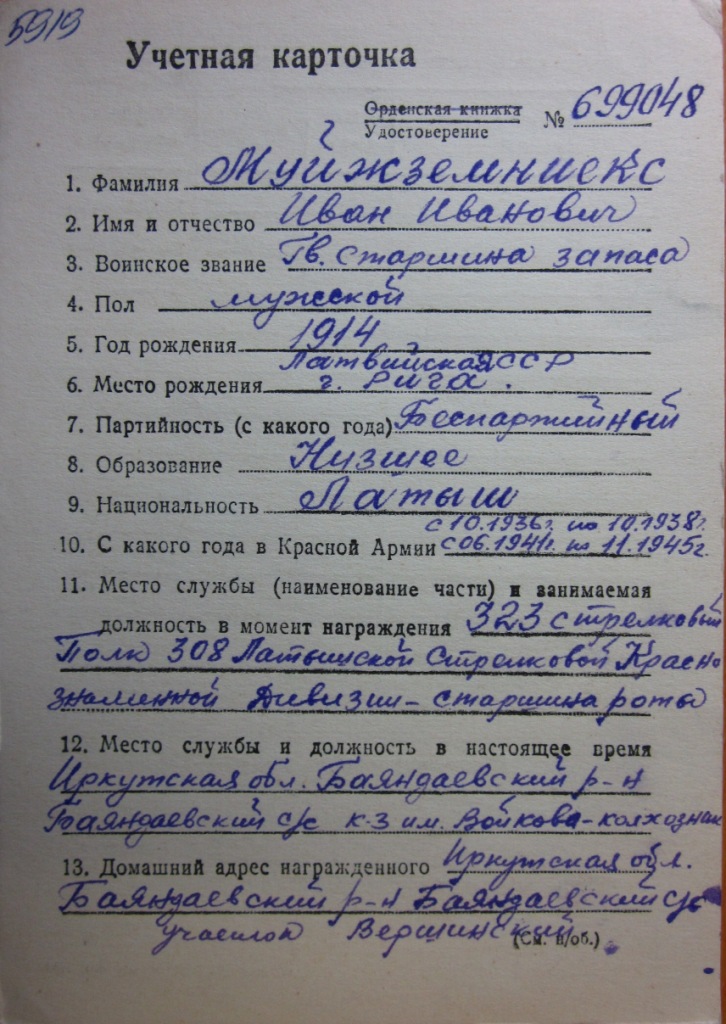 5919
Учетная карточка
Орденская книжка
Удостоверение № 699048
1. Фамилия Муйжземниекс
2. Имя и отчество Иван Иванович
3. Воинское звание Гв. старшина запаса
4. Пол мужской
5. Год рождения 1914
Латвийская ССР
6. Место рождения г. Рига.
7. Партийность (с какого года) Беспартийный
8. Образование Низшее
9. Национальность Латыш
с 10.1936г. по 10.1938г.
10. С какого года в Красной Армии с 06.1941г. по 11.1945г.
11. Место службы (наименование части) и занимаемая
должность в момент награждения 323 стрелковый
Полк 308 Латышской Стрелковой Красно
знаменной Дивизии - старшина роты
12. Место службы и должность в настоящее время
Иркутская обл. Баяндаевский р-н
Баяндаевский с/с к-з им. Войкова - колхозник
13. Домашний адрес награжденного Иркутская обл.
Баяндаевский р-н Баяндаевский с/с
участок Вершинский
(См. н/об.)